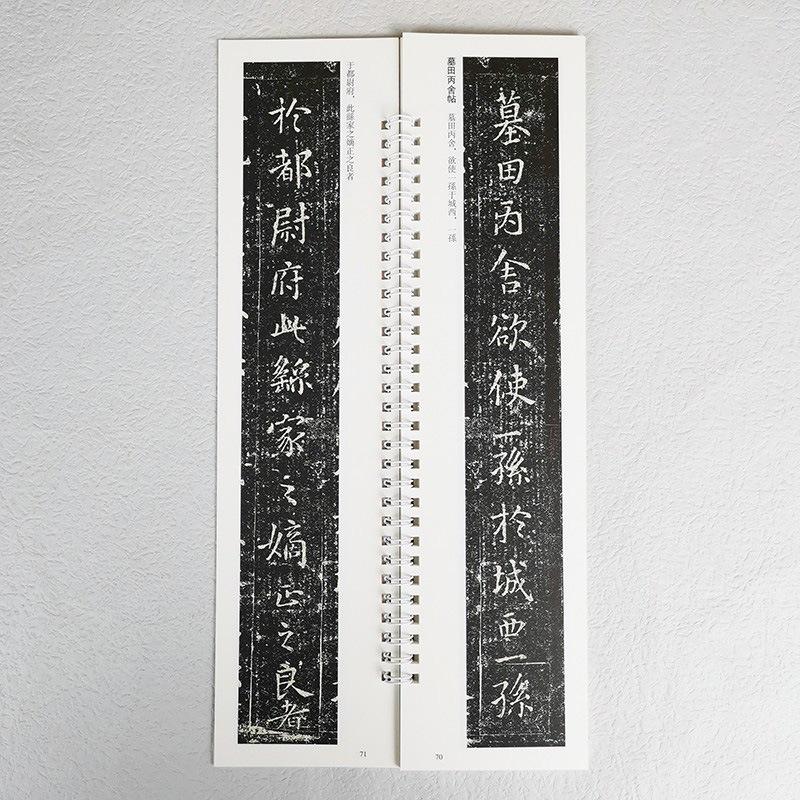 墓田丙舍帖 墓田丙舍，欲使一孫于城西，一孫
墓田丙舍欲使一孫於城西一孫
70
于都尉府，此繇家之嫡正之良者
於都尉府此繇家之嫡正之良者
71